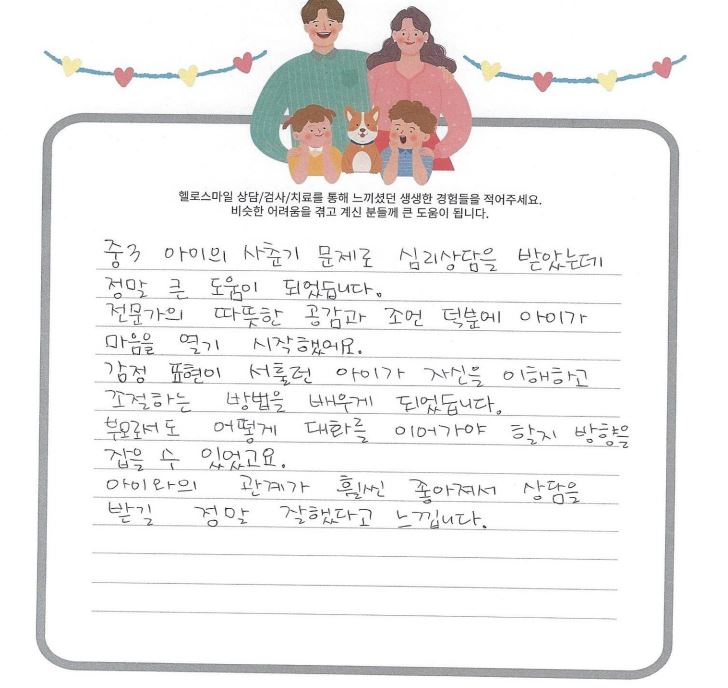 헬로스마일 상담/검사/치료를 통해 느끼셨던 생생한 경험들을 적어주세요.
비슷한 어려움을 겪고 계신 분들께 큰 도움이 됩니다.
중3 아이의 사춘기 문제로 심리상담을 받았는데
정말 큰 도움이 되었습니다.
전문가의 따뜻한 공감과 조언 덕분에 아이가
마음을 열기 시작했어요.
감정 표현이 서툴던 아이가 자신을 이해하고
조절하는 방법을 배우게 되었습니다.
부모로서도 어떻게 대화를 이어가야 할지 방향을
잡을 수 있었고요.
아이와의 관계가 훨씬 좋아져서 상담을
받길 정말 잘했다고 느낍니다.